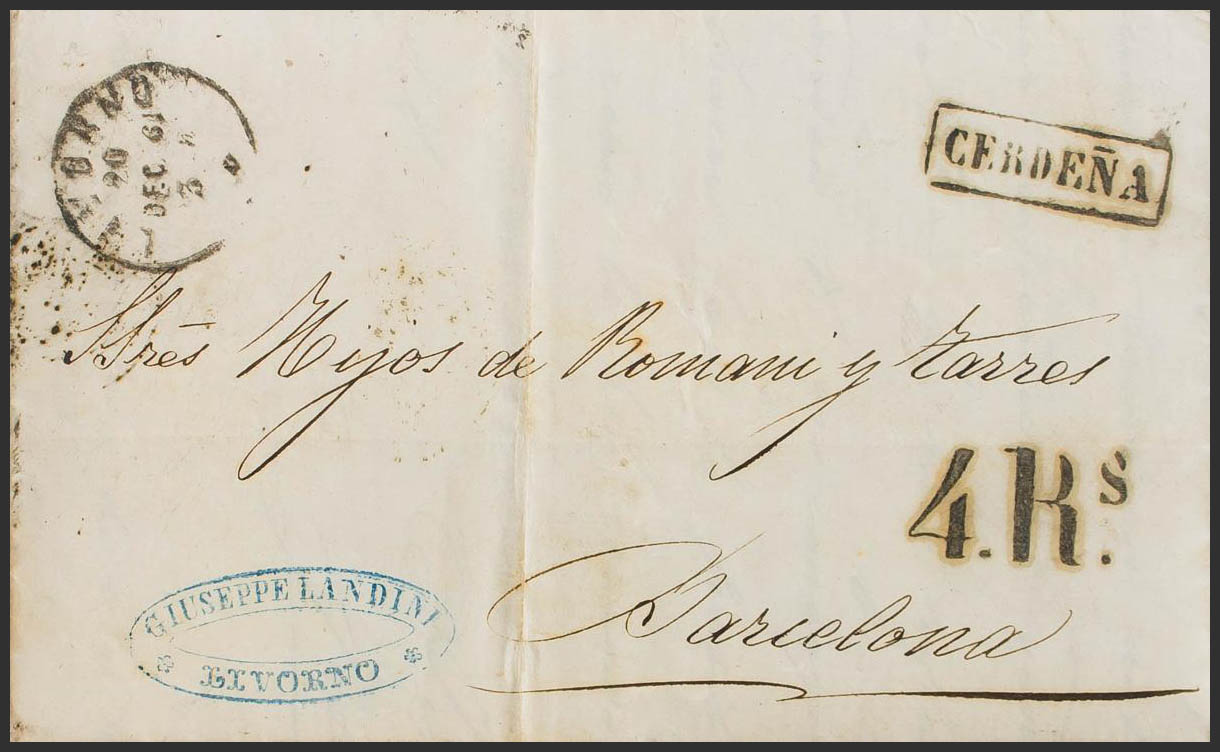 LIVORNO
20
DEC 61
3 S
CERDEÑA
SSres Hijos de Romani y Tarres
4.Rs.
Barcelona
GIUSEPPE LANDINI
LIVORNO